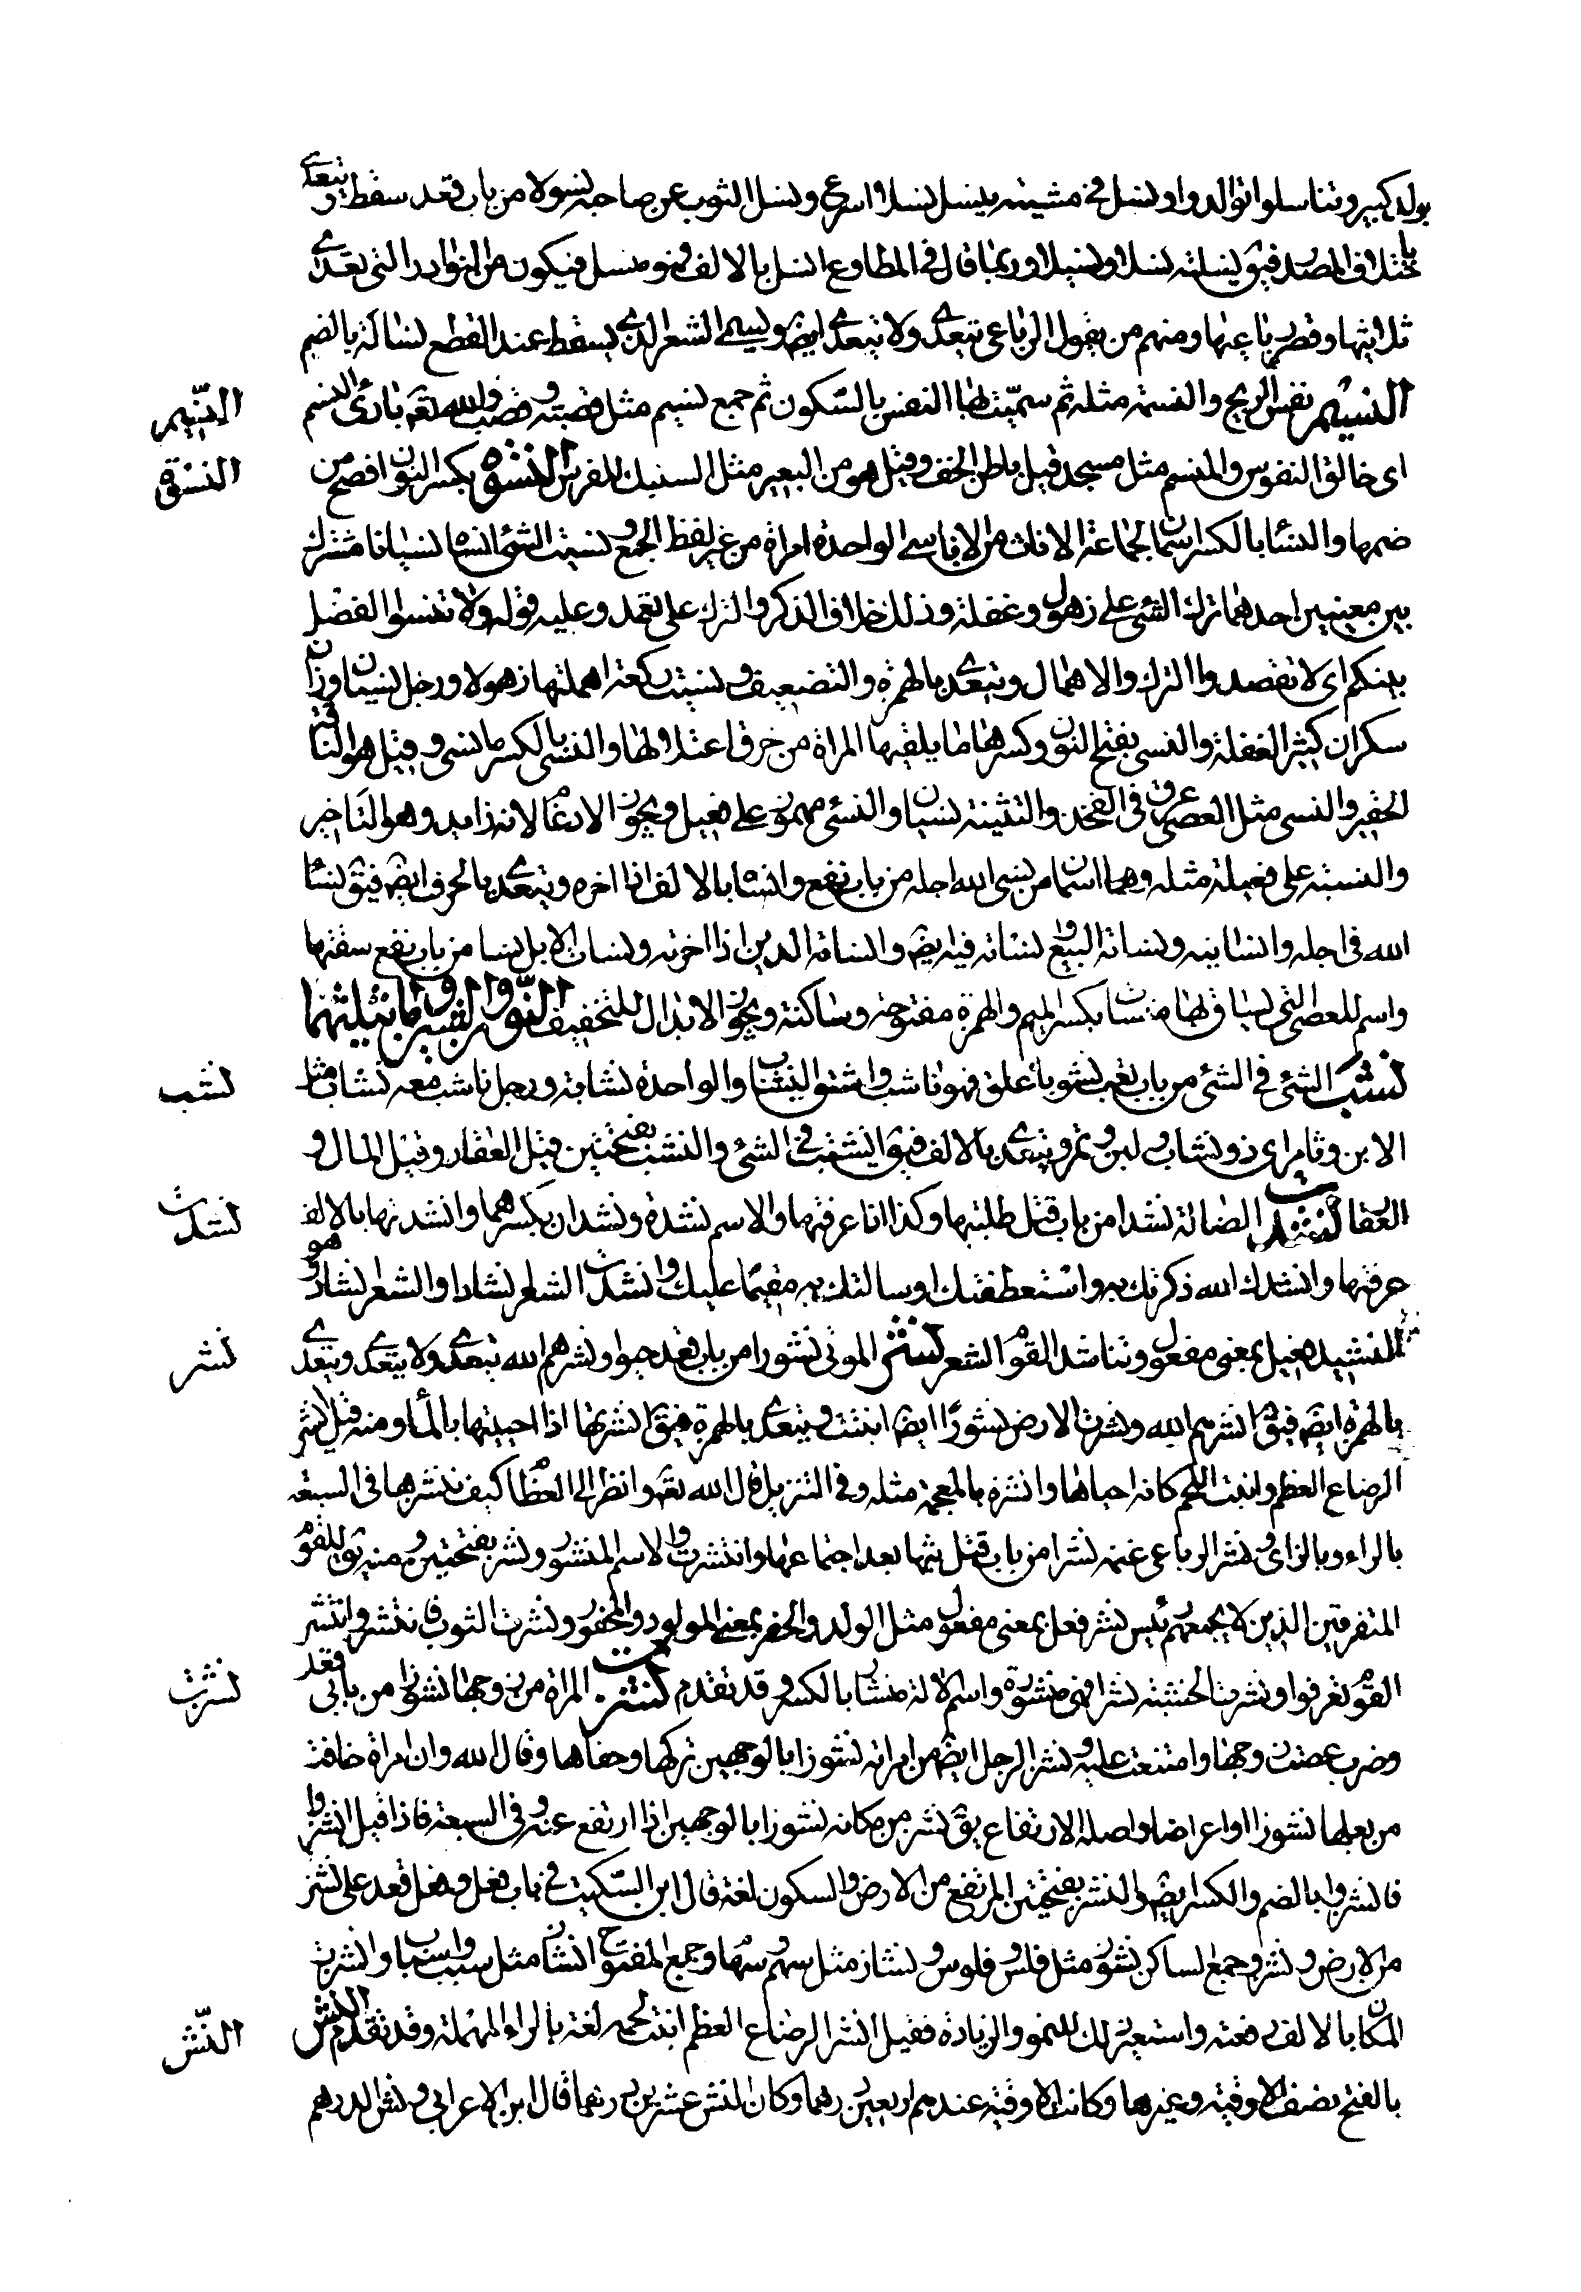 بولد كبير وتناسلوا توالدوا ونسل في مشيته ينسل نسلا اسرع ونسل الثوب عن صاحبه نسولا من باب قعد سقط ويتعدى
باختلاف المصدر فيق نسلته نسلا ونسيلا وربما قال في المطاوع انسل بالالف فهو منسل فيكون من النوادر التي تعدى
ثلاثيها وقصر رباعيها ومنهم من يقول الرباعي يتعدى ولا يتعدى ايض ويسمى الشعر الذي يسقط عند القطع نسالة بالضم
النسيم نفس الريح والنسمة مثله ثم سميت بها النفس بالسكون ثم جمع نسم مثل قصبة وقصب والله تعه بارئ النسم
النسيم
اى خالق النفوس والمنسم مثل مسجد قيل باطن الخف وقيل هو من البعير مثل السنبك للفرس النسوة بكسر النون افصح من
النسوة
ضمها والنسا بالكسر اسمان لجماعة الاناث من الاناسي الواحدة امراة من غير لفظ الجمع ونسيت الشئ انساه نسيانا مشترك
بين معنيين احدهما ترك الشئ على ذهول وغفلة وذلك خلاف الذكر والترك على تعمد وعليه قوله ولا تنسوا الفضل
بينكم اى لا تقصدوا الترك والاهمال ويتعدى بالهمزة والتضعيف ونسيت ركعة اهملتها ذهولا ورجل نسيان وزان
سكران كثير الغفلة والنسى بفتح النون وكسرها ما يلقيها المراة من خرق اعتلالها والنسى بالكسر ما نسى وقيل هو التافه
الحقير والنسى مثل العصى عرق في الفخذ والتثنية نسيان والنسئ مهموز على فعيل ويجوز الادغام لانه زايد وهو التاخير
والنسيئة على فعيلة مثله وهما اسمان من نسى الله اجله من باب نفع وانساه بالالف اذا اخره ويتعدى بالحرف ايض فيق نسا
الله في اجله وانسا فيه ونساته البيع ونساته فيه ايض وانساته الدين اذا اخرته ونسات الابل نسا من باب نفع سقتها
واسم للعصى التي يساق بها منساة بكسر الميم والهمزة مفتوحة وساكنة ويجوز الابدال للتخفيف النون والشين وما يثلثهما
نشب الشئ في الشئ من باب تعب نشوبا علق فهو ناشب واشتق النشاب والواحدة نشابة ورجل ناشب معه نشاب مثل
نشب
الابن وتامر اى ذو نشاب ولبن وتمر ويتعدى بالالف فيق انشبت في الشئ والنشب بفتحتين قيل العقار وقيل المال و
العقار نشدت الضالة نشدا من باب قتل طلبتها وكذا اذا عرفتها والاسم نشدة ونشدان بكسرهما وانشدتها بالالف
نشدت
عرفتها وانشدك الله ذكرتك به واستعطفتك او سالتك به مقسما عليك وانشدت الشعر انشادا والشعر نشاد وهو
النشيد فعيل بمعنى مفعول وتناشد القوم الشعر نشر الموتى نشورا من باب قعد حيوا ونشرهم الله يتعدى ولا يتعدى ويتعدى
نشر
بالهمزة ايض فيق انشرهم الله ونشرت الارض نشورا ايض انبتت ويتعدى بالهمزة فيق انشرتها اذا احييتها بالماء ومنه قيل انشر
الرضاع العظم وانبت اللحم كانه احياها وانشزه بالمعجمة مثله وفي التنزيل قال الله تعه وانظر الى العظام كيف ننشزها في السبعة
بالراء وبالزاى ونشر الراعى غنمه نشرا من باب قتل بثها بعد اجتماعها وانتشرت والاسم المنشور ونشر بفتحتين ومنه يق للقوم
المتفرقين الذين لا يجمعهم رئيس نشر فعل بمعنى مفعول مثل الولد والحفر بمعنى المولود والمحفور ونشرت الثوب فانتشر وانتشر
القوم تفرقوا ونشرت الخشبة نشرا فهى منشورة واسم الالة منشار بالكسر وقد تقدم نشزت المراة من زوجها نشوزا من بابي قعد
نشزت
وضرب عصت زوجها وامتنعت عليه ونشز الرجل ايض من امراته نشوزا بالوجهين تركها وجفاها وقال الله وان امراة خافت
من بعلها نشوزا او اعراضا واصله الارتفاع يق نشز من مكانه نشوزا بالوجهين اذا ارتفع عنه وفي السبعة فاذا قيل انشزوا
فانشزوا بالضم والكسر ايض والنشز بفتحتين المرتفع من الارض والسكون لغة قال ابن السكيت في باب فعل وفعل قعد على نشز
من الارض ونشز وجمع الساكن نشوز مثل فلس وفلوس ونشاز مثل سهم وسهام وجمع المفتوح انشاز مثل سبب واسباب وانشزت
المكان بالالف رفعته واستعير ذلك للنمو والزيادة فقيل انشز الرضاع العظم انبت لحمه لغة بالراء المهملة وقد تقدم النش
النش
بالفتح نصف الاوقية وغيرها وكانت الاوقية عندهم اربعين درهما وكان النش عشرين درهما قال ابن الاعرابي ونش الدرهم